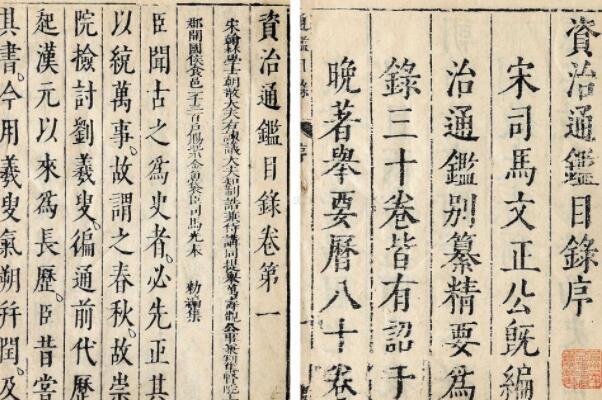 資治通鑑目錄序
宋司馬文正公旣編
治通鑑別纂精要爲
錄三十卷皆有詔于
晚著舉要曆八十卷
通鑑目錄 序
資治通鑑目錄卷第一
宋翰林學士朝散大夫右諫議大夫知制誥兼侍講同提舉萬壽觀公事兼判集賢院
郡開國侯食邑一千三百戶賜紫金魚袋臣司馬光奉 勑編集
臣聞古之爲史者。必先正其
以統萬事。故謂之春秋。故崇
院檢討劉羲叟。徧通前代歷
起漢元以來爲長歷。臣昔嘗
其書。今用羲叟氣朔幷閏。及